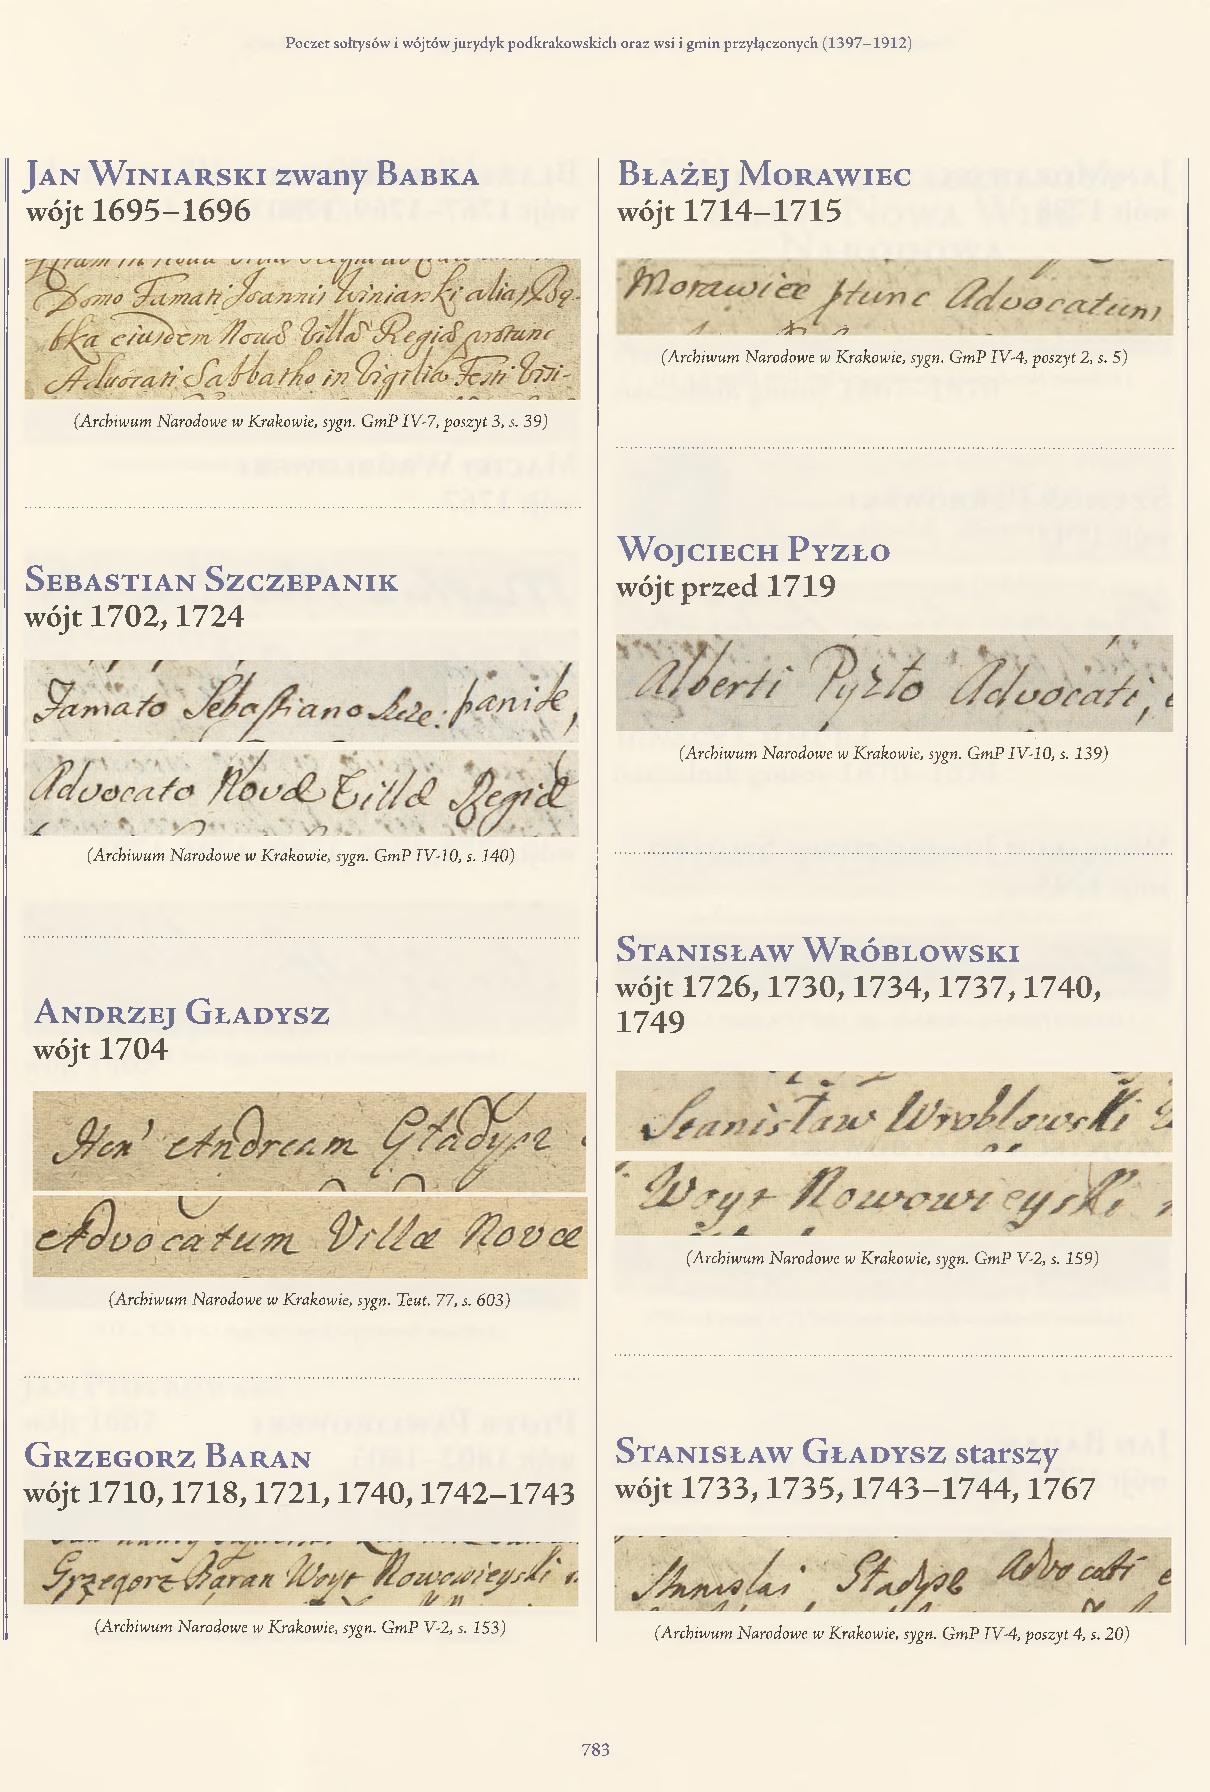 Poczet sołtysów i wójtów jurydyk podkrakowskich oraz wsi i gmin przyłączonych (1397–1912)
Jan Winiarski zwany Babka
wójt 1695–1696
Domo Famati Joannis Winiarski alias Ba-
bka eiusdem Novæ Villæ Regiæ protunc
Advocati Sabbatho in Vigilia Festi Visi-
(Archiwum Narodowe w Krakowie, sygn. GmP IV-7, poszyt 3, s. 39)
Sebastian Szczepanik
wójt 1702, 1724
Famato Sebastiano Szcze:panik,
Advocato Novæ Villæ Regiæ
(Archiwum Narodowe w Krakowie, sygn. GmP IV-10, s. 140)
Andrzej Gładysz
wójt 1704
Andream Gładysz
Advocatum Villæ Novæ
(Archiwum Narodowe w Krakowie, sygn. Teut. 77, s. 603)
Grzegorz Baran
wójt 1710, 1718, 1721, 1740, 1742–1743
Grzegorz Baran Woyt Nowowieyski
(Archiwum Narodowe w Krakowie, sygn. GmP V-2, s. 153)
Błażej Morawiec
wójt 1714–1715
Morawiec ptunc Advocatum
(Archiwum Narodowe w Krakowie, sygn. GmP IV-4, poszyt 2, s. 5)
Wojciech Pyzło
wójt przed 1719
Alberti Pyzło Advocati,
(Archiwum Narodowe w Krakowie, sygn. GmP IV-10, s. 139)
Stanisław Wróblowski
wójt 1726, 1730, 1734, 1737, 1740,
1749
Stanisław Wroblowski
Woyt Nowowieyski
(Archiwum Narodowe w Krakowie, sygn. GmP V-2, s. 159)
Stanisław Gładysz starszy
wójt 1733, 1735, 1743–1744, 1767
Stanislai Gładysz Advocati
(Archiwum Narodowe w Krakowie, sygn. GmP IV-4, poszyt 4, s. 20)
783